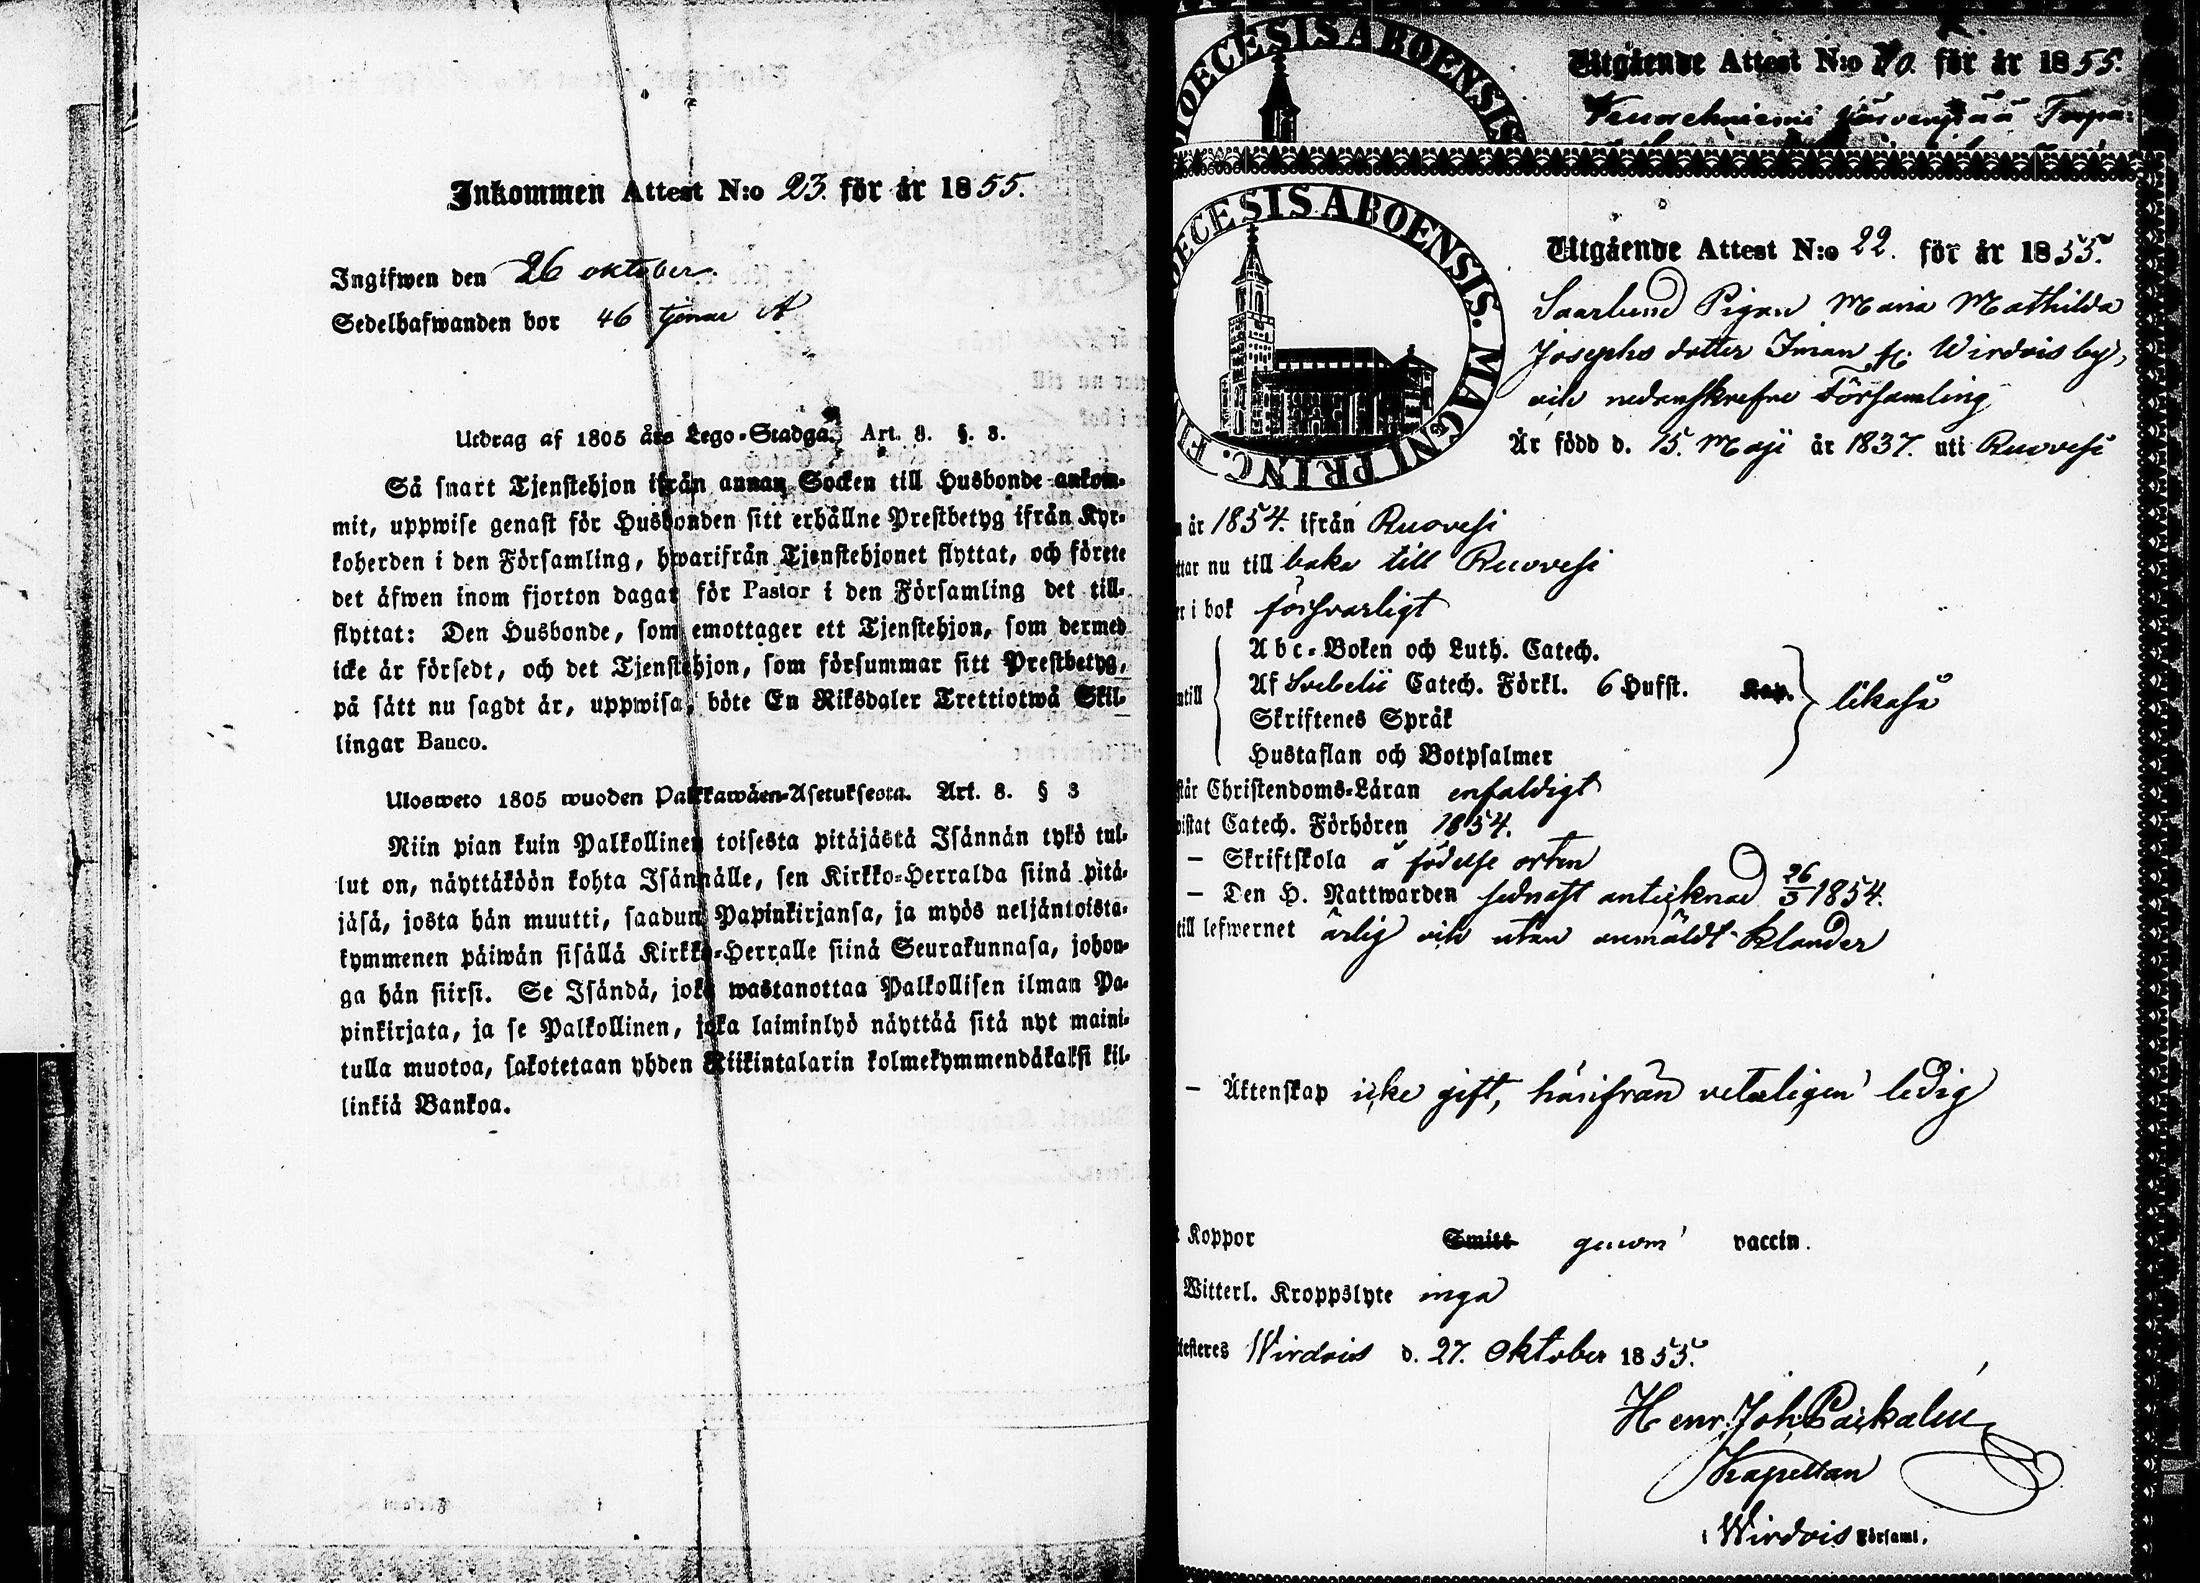 Inkommen Attest N:o 23. för år 1855.
Ingifwen den 26 oktober.
Sedelhafwanden bor 46 tjenar A
Utdrag af 1805 års Lego-Stadga, Art. 8. §. 3.
Så snart Tjenstehjon ifrån annan Socken till Husbonde ankom-
mit, uppwise genast för Husbonden sitt erhållne Prestbetyg ifrån Kyr-
koherden i den Församling, hwarifrån Tjenstehjonet flyttat, och förete
det äfwen inom fjorton dagar för Pastor i den Församling det till-
flyttat: Den Husbonde, som emottager ett Tjenstehjon, som dermed
icke är försedt, och det Tjenstehjon, som försummar sitt Prestbetyg,
på sätt nu sagdt är, uppwisa, böte En Riksdaler Trettiotwå Skil-
lingar Banco.
Ulosweto 1805 wuoden Palkkawäen-Asetuksesta. Art. 8. § 3
Niin pian kuin Palkollinen toisesta pitäjästä Isännän tykö tul-
lut on, näyttäköön kohta Isännälle, sen Kirkko-Herralda siinä pitä-
jäsä, josta hän muutti, saadun Papinkirjansa, ja myös neljäntoista-
kymmenen päiwän sisällä Kirkko-Herralle siinä Seurakunnasa, johon-
ga hän siirsi. Se Isändä, joka wastanottaa Palkollisen ilman Pa-
pinkirjata, ja se Palkollinen, joka laiminlyö näyttää sitä nyt maini-
tulla muotoa, sakotetaan yhden Riikintalarin kolmekymmendäkaksi kil-
linkiä Bankoa.
DIOECESIS ABOENSIS
Utgående Attest N:o 20. för år 1855.
DIOECESIS ABOENSIS. MAGNI PRINC. F
Utgående Attest N:o 22. för år 1855.
Pigan Maria Mathilda
Josephs dotter Inian fr. Wirdois by,
och nedanskrefne Församling
Är född d. 15. Maji år 1837. uti Ruovesi
år 1854. ifrån Ruovesi
ttar nu till baka till Ruovesi
r i bok försvarligt
Abc-Boken och Luth. Catech.
Af Svebelii Catech. Förkl. 6 Hufst. Kap.
Skriftenes Språk
Hustaflan och Botpsalmer
ntill likaså
står Christendoms-Läran enfaldigt
vistat Catech. Förhören 1854.
– Skriftskola å födelse orten
– Den H. Nattwarden sednast antecknad 26/3 1854.
till lefwernet ärlig och utan anmäldt klander
– Äktenskap icke gift, härifrån veterligen ledig
t Koppor Smitt genom vaccin.
Witterl. Kroppslyte inga
ttesteres Wirdois d. 27. Oktober 1855.
Henr. Joh. Paikalén
Kapellan
i Wirdois Församl.